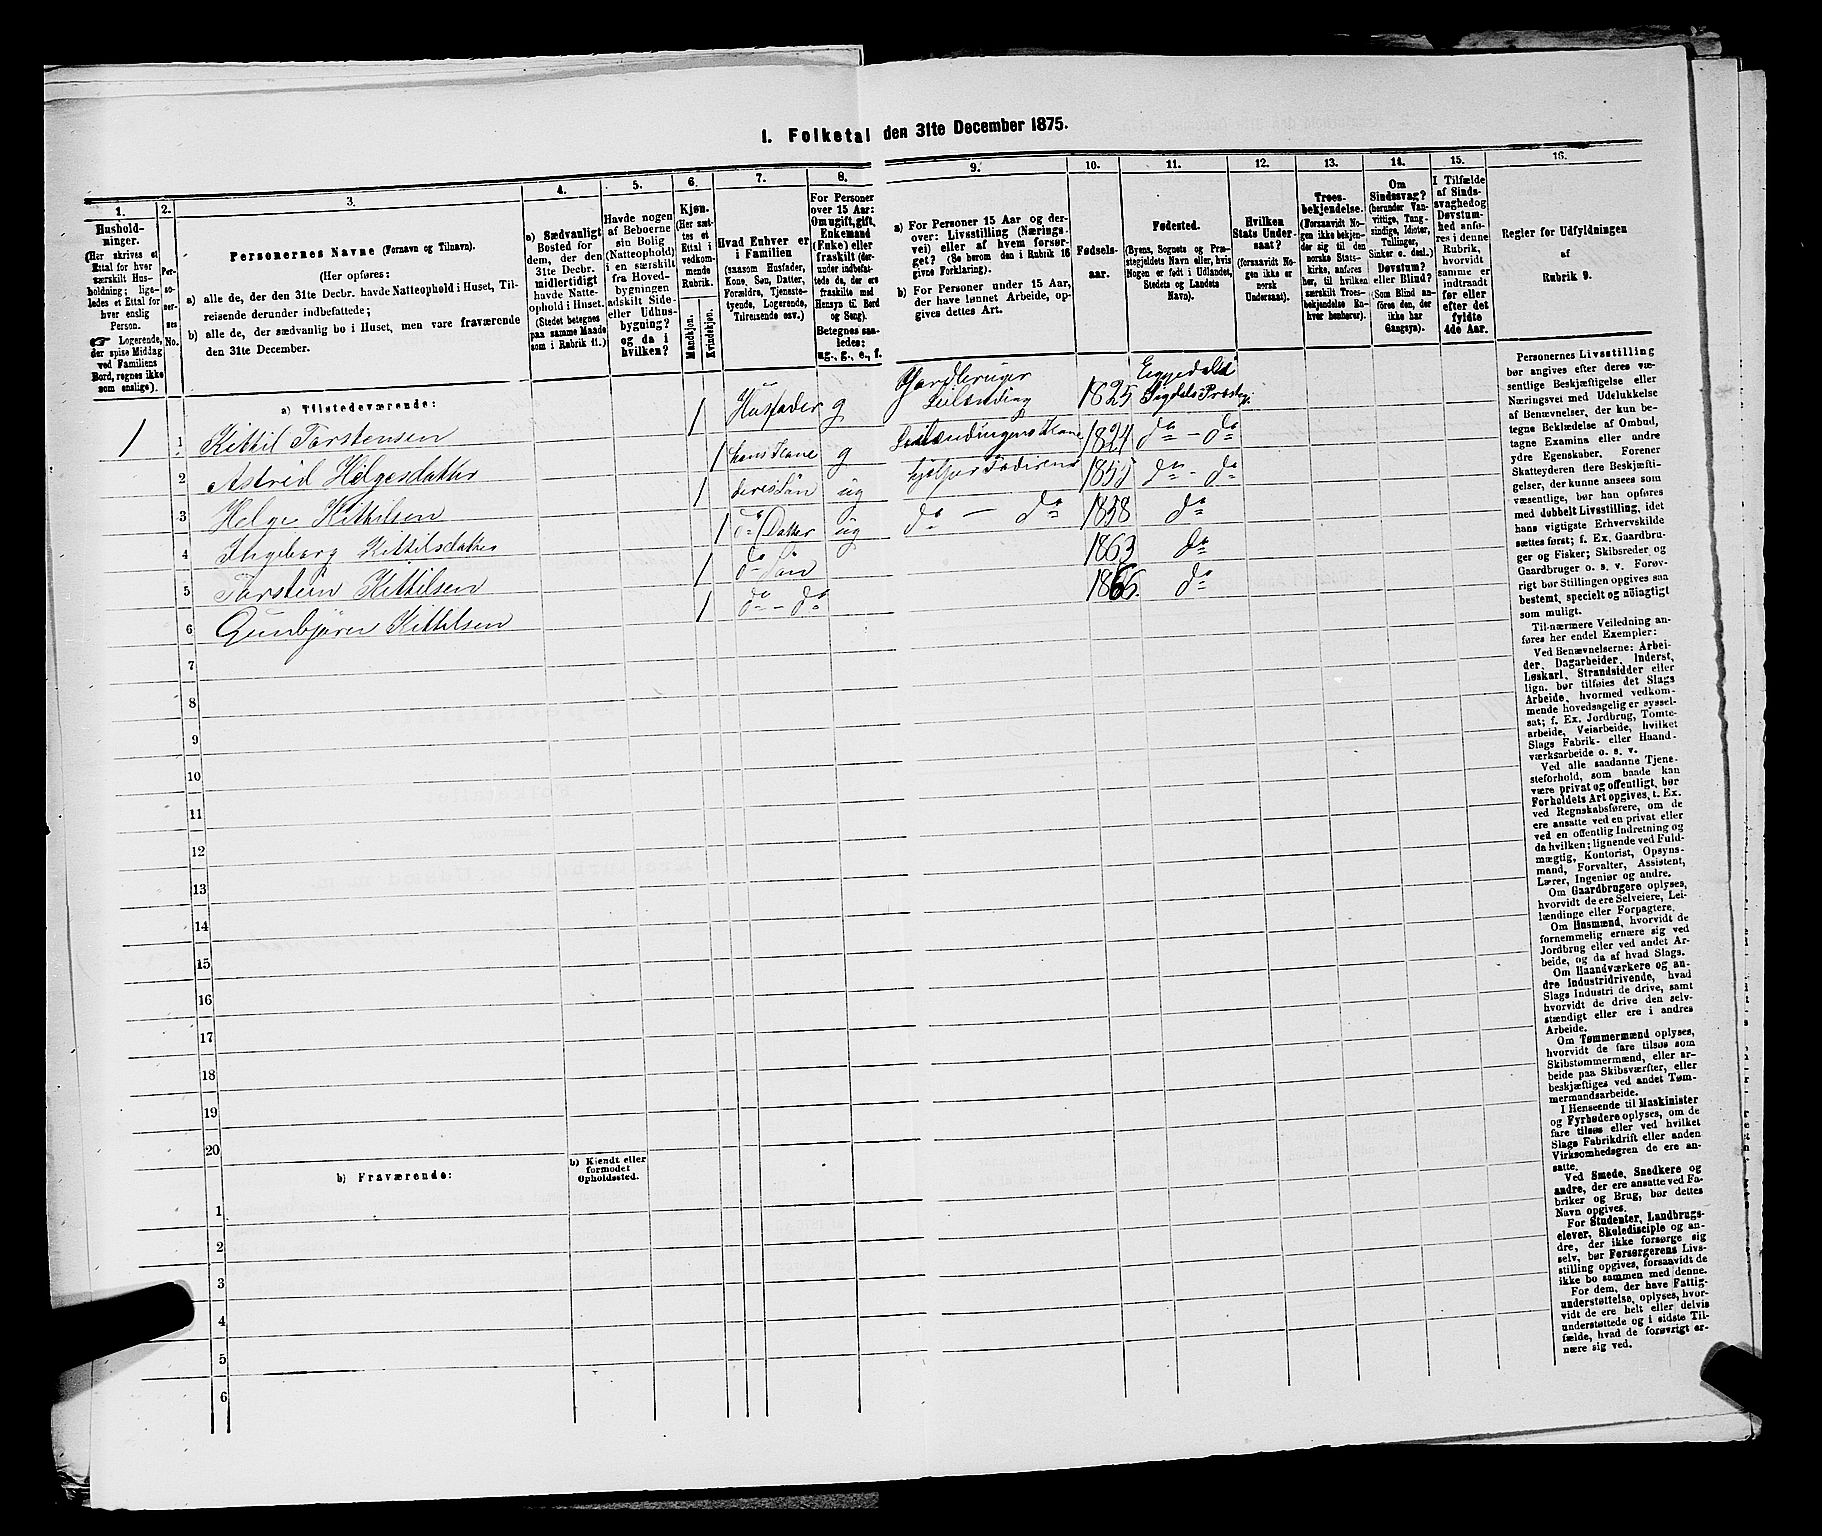 I. Folketal den 31te December 1875.
1. 2. 3. 4. 5. 6. 7. 8. 9. 10. 11. 12. 13. 14. 15. 16.
Hushold-
ninger.
(Her skrives et
Ettal for hver
særskilt Hus-
holdning; lige-
ledes et Ettal for
hver enslig
Person.
☞ Logerende,
der spise Middag
ved Familiens
Bord, regnes ikke
som enslige).
Per-
so-
ner-
nes
No.
Personernes Navne (Fornavn og Tilnavn).
(Her opføres:
a) alle de, der den 31te Decbr. havde Natteophold i Huset, Til-
reisende derunder indbefattede;
b) alle de, der sædvanlig bo i Huset, men vare fraværende
den 31te December.
a) Sædvanligt
Bosted for
dem, der den
31te Decbr.
midlertidigt
havde Natte-
ophold i Huset.
(Stedet betegnes
paa samme Maade
som i Rubrik 11.)
Havde nogen
af Beboerne
sin Bolig
(Natteophold)
i en særskilt
fra Hoved-
bygningen
adskilt Side-
eller Udhus-
bygning?
og da i
hvilken?
Kjøn.
(Her sæt-
tes et
Ettal i
vedkom-
mende
Rubrik.
Mandkjøn.
Kvindekjøn.
Hvad Enhver er
i Familien
(saasom Husfader,
Kone, Søn, Datter,
Forældre, Tjeneste-
tyende, Logerende,
Tilreisende osv.)
For Personer
over 15 Aar:
Om ugift, gift,
Enkemand
(Enke) eller
fraskilt (der-
under indbefat-
tede da, der ere
fraskilte med
Hensyn til Bord
og Seng).
Betegnes saa-
ledes:
ug., g., e., f.
a) For Personer 15 Aar og der-
over: Livsstilling (Nærings-
vei) eller af hvem forsør-
get? (Se herom den i Rubrik 16
givne Forklaring).
b) For Personer under 15 Aar,
der have lønnet Arbeide, op-
gives dettes Art.
Fødsels-
aar.
Fødested.
(Byens, Sognets og Præ-
stegjeldets Navn eller, hvis
Nogen er født i Udlandet,
Stedets og Landets
Navn).
Hvilken
Stats Under-
saat?
(forsaavidt No-
gen ikke er
norsk
Undersaat).
Troes-
bekjendelse.
(Forsaavidt No-
gen ikke bekjen-
der sig til den
norske Stats-
kirke, anføres
her, til hvilken
særskilt Troes-
bekjendelse En-
hver henhører).
Om
Sindssvag?
(herunder Van-
vittige, Tung-
sindige, Idioter,
Tullinger,
Sinker o. desl.)
Døvstum?
eller Blind?
(Som Blind an-
føres den, der
ikke har
Gangsyn).
I Tilfælde
af Sinds-
svaghed og
Døvstum-
hed anfø-
res i denne
Rubrik,
hvorvidt
samme er
indtraadt
før eller
efter det
fyldte
4de Aar.
Regler for Udfyldningen
af
Rubrik 9.
a) Tilstedeværende:
1 1 Kittil Torstensen 1 Husfader g Gardbruger Leilænding 1825 Eggedals Sigdals Præstegj.
2 Astrid Helgesdatter 1 hans Kone g Leilændingens Kone 1824 do - do
3 Helge Kittilsen 1 deres Søn ug hjelper Faderen 1855 do - do
4 Ingeborg Kittilsdatter 1 do Datter ug do - do 1858 do
5 Torstein Kittilsen 1 do Søn 1863 do
6 Gunbjøren Kittilsen 1 do - do 1866. do
7
8
9
10
11
12
13
14
15
16
17
18
19
20
b) Fraværende:
b) Kjendt eller
formodet
Opholdssted.
1
2
3
4
5
6
Personernes Livsstilling
bør angives efter deres væ-
sentlige Beskjæftigelse eller
Næringsvei med Udelukkelse
af Benævnelser, der kun be-
tegne Beklædelse af Ombud,
tagne Examina eller andre
ydre Egenskaber. Forener
Skatteyderen flere Beskjæfti-
gelser, der kunne ansees som
væsentlige, bør han opføres
med dobbelt Livsstilling, idet
hans vigtigste Erhvervskilde
sættes først; f. Ex. Gaardbru-
ger og Fisker; Skibsreder og
Gaardbruger o. s. v. Forøv-
rigt bør Stillingen opgives saa
bestemt, specielt og nøiagtigt
som muligt.
Til nærmere Veiledning an-
føres her endel Exempler:
Ved Benævnelserne: Arbei-
der, Dagarbeider, Inderst,
Løskarl, Strandsidder eller
lign. bør tilføies det Slags
Arbeide, hvormed vedkom-
mende hovedsagelig er syssel-
sat; f. Ex. Jordbrug, Tomte-
arbeide, Veiarbeide, hvilket
Slags Fabrik- eller Haand-
værksarbeide o. s. v.
Ved alle saadanne Tjene-
steforhold, som baade kan
være privat og offentligt, bør
Forholdets Art opgives, t. Ex.
ved Regnskabsførere, om de
ere ansatte ved en privat eller
ved en offentlig Indretning og
da hvilken; lignende ved Fuld-
mægtig, Kontorist, Opsyns-
mand, Forvalter, Assistent,
Lærer, Ingeniør og andre.
Om Gaardbrugere oplyses,
hvorvidt de ere Selveiere, Lei-
lændinge eller Forpagtere.
Om Husmænd, hvorvidt de
fornemmelig ernære sig ved
Jordbrug eller ved andet Ar-
beide, og da af hvad Slags.
Om Haandværkere og an-
dre Industridrivende, hvad
Slags Industri de drive, samt
hvorvidt de drive den selv-
stændigt eller ere i andres
Arbeide.
Om Tømmermænd oplyses,
hvorvidt de fare tilsøs som
Skibstømmermænd, eller ar-
beide paa Skibsværfter, eller
beskjæftiges ved andet Tøm-
mermandsarbeide.
I Henseende til Maskinister
og Fyrbødere oplyses, om de
fare tilsøs eller ved hvilket
Slags Fabrikdrift eller anden
Virksomhedsgren de ere an-
satte.
Ved Smede, Snedkere og
andre, der ere ansatte ved Fa-
briker og Brug, bør dettes
Navn opgives.
For Studenter, Landbrugs-
elever, Skoledisciple og an-
dre, der ikke forsørge sig
selv, bør Forsørgerens Livs-
stilling opgives, forsaavidt de
ikke bo sammen med denne.
For dem, der have Fattig-
understøttelse, oplyses, hvor-
vidt de ere helt eller delvis
understøttede og i sidste Til-
fælde, hvad de forøvrigt er-
nære sig ved.